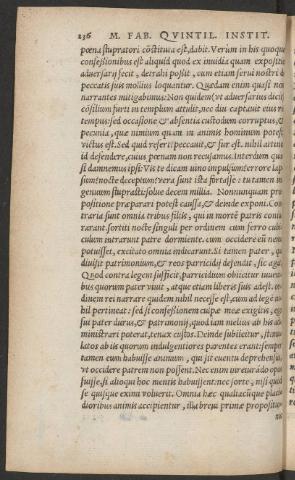 236 M. FAB. QVINTIL. INSTIT.
pœna stupratori cõstituta est, dabit. Verùm in his quoque
confessionibus est aliquid quod ex inuidia quam expositio
aduersarij fecit, detrahi possit, cum etiam serui nostri de
peccatis suis molius loquantur. Quædam enim quasi non
narrantes mitigabimus: Non quidem (vt aduersarius dicit)
cõsilium furti in templum attulit, nec diu captauit eius rei
tempus: sed occasione & absentia custodum corruptus, &
pecunia, quæ nimium quam in animis hominum potest
victus est. Sed quid refert? peccauit, & fur est. nihil attinet
id defendere, cuius pœnam non recusamus. Interdum quasi
si damnemus ipsi: Vis te dicam uino impulsum? errore lapsum?
nocte deceptum? vera sunt ista fortasse: tu tamen in
genuum stuprasti: solue decem millia. Nonnunquam pro
positione præparari potest caussa, & deinde exponi. Con
traria sunt omnia tribus filiis, qui in mortẽ patris coniu
rarant. sortiti nocte singuli per ordinem cum ferro cubi
culum intrarunt patre dormiente. cum occidere eũ nemo
potuisset, excitato omnia indicarunt. Si tamen pater, qui
diuisit patrimonium, & reos parricidij defendit, sic agat:
Quod contra legem sufficit, parricidium obiicitur iuueni
bus quorum pater viuit, atque etiam liberis suis adest. or
dinem rei narrare quidem nihil necesse est, cum ad lege nihil
hil pertineat: sed si confessionem culpæ meæ exigitis,
pater durus, & patrimonij, quod iam melius ab his ad
ministrari poterat, tenax custos. Deinde subiicitur, stimu
latos ab iis quorum indulgentiores parentes erant: semper
tamen eum habuisse animum, qui sit euentu deprehensus,
vt occidere patrem non possent. Nec enim iureiurãdo opus
fuisse, si alioqui hoc mentis habuissent: nec sorte, nisi quod
se quisque eximi voluerit. Omnia hæc qualiacũque placi
dioribus animis accipientur, illa breui primæ propositio